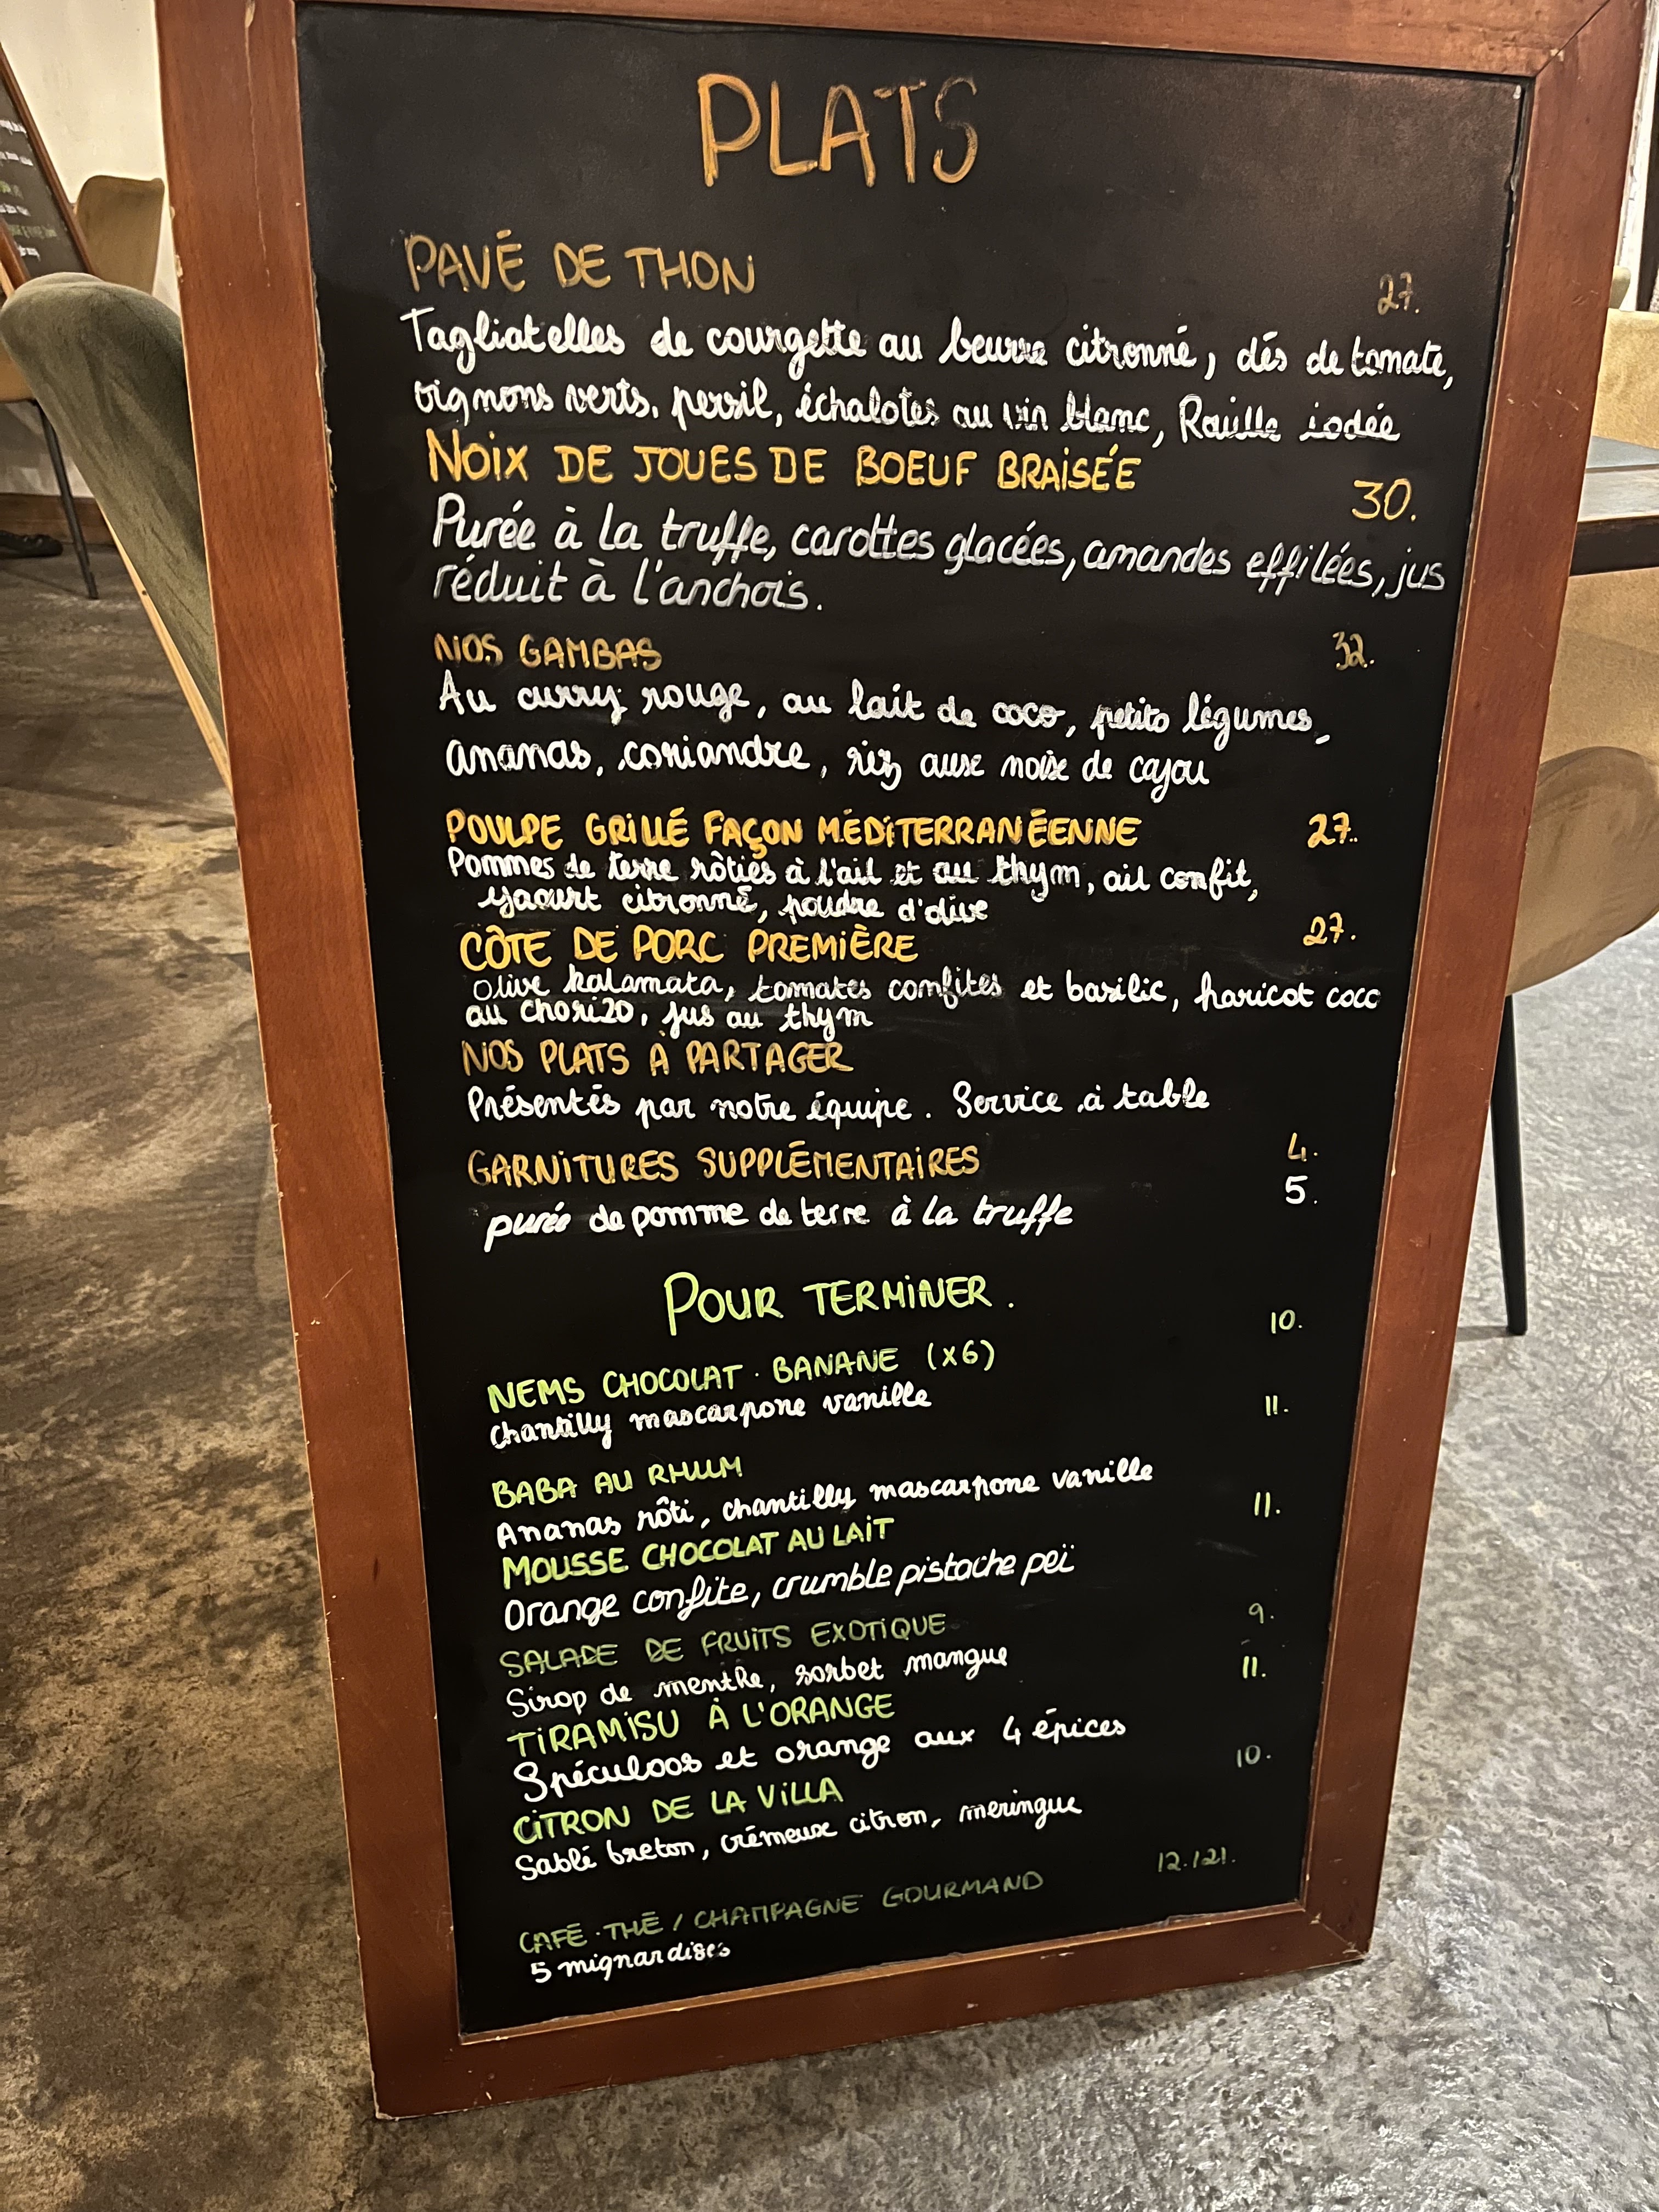 PLATS
PAVÉ DE THON 27.
Tagliatelles de courgette au beurre citronné, dés de tomate,
oignons verts, persil, échalotes au vin blanc, Rouille iodée
NOIX DE JOUES DE BOEUF BRAISÉE 30.
Purée à la truffe, carottes glacées, amandes effilées, jus
réduit à l'anchois.
NOS GAMBAS 32.
Au curry rouge, au lait de coco, petits légumes,
ananas, coriandre, riz aux noix de cajou
POULPE GRILLÉ FAÇON MÉDITERRANÉENNE 27.
Pommes de terre rôties à l'ail et au thym, ail confit,
yaourt citronné, poudre d'olive
CÔTE DE PORC PREMIÈRE 27.
Olive kalamata, tomates confites et basilic, haricot coco
au chorizo, jus au thym
NOS PLATS À PARTAGER
Présentés par notre équipe. Service à table
GARNITURES SUPPLÉMENTAIRES 4.
purée de pomme de terre à la truffe 5.
POUR TERMINER.
NEMS CHOCOLAT. BANANE (x6) 10.
chantilly mascarpone vanille
BABA AU RHUM 11.
Ananas rôti, chantilly mascarpone vanille
MOUSSE CHOCOLAT AU LAIT 11.
Orange confite, crumble pistache peï
SALADE DE FRUITS EXOTIQUE 9.
Sirop de menthe, sorbet mangue
TIRAMISU À L'ORANGE 11.
Spéculoos et orange aux 4 épices
CITRON DE LA VILLA 10.
Sablé breton, crémeux citron, meringue
CAFÉ.THÉ / CHAMPAGNE GOURMAND 12./21.
5 mignardises